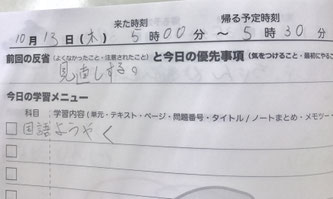 来た時刻 帰る予定時刻
10月13日(木) 5時00分～5時30分
前回の反省(よくなかったこと・注意されたこと)と今日の優先事項(気をつけること・最初にやること
見直しする。
今日の学習メニュー
科目:学習内容(単元・テキスト・ページ・問題番号・タイトル/ノートまとめ・メモツー
国語ようやく